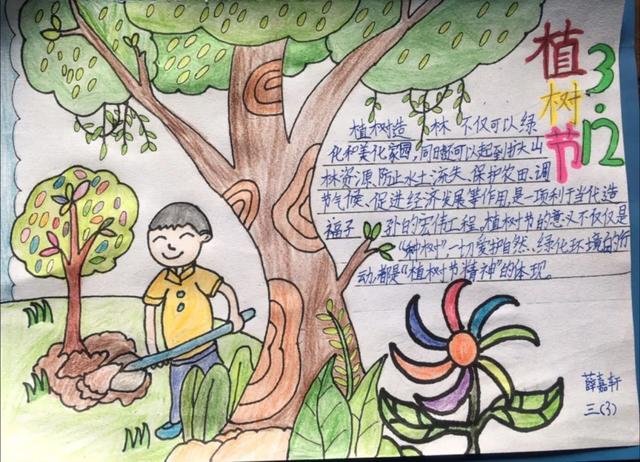 植树节
3.12
植树造 林 不仅可以绿
化和美化家园,同时还可以起到扩大山
林资源、防止水土流失、保护农田、调
节气候、促进经济发展等作用,是一项利于当代、造
福子 孙的宏伟工程。植树节的意义不仅仅是
“种树”一切爱护自然、绿化环境的行
动,都是“植树节精神”的体现。
薛嘉轩
三(3)